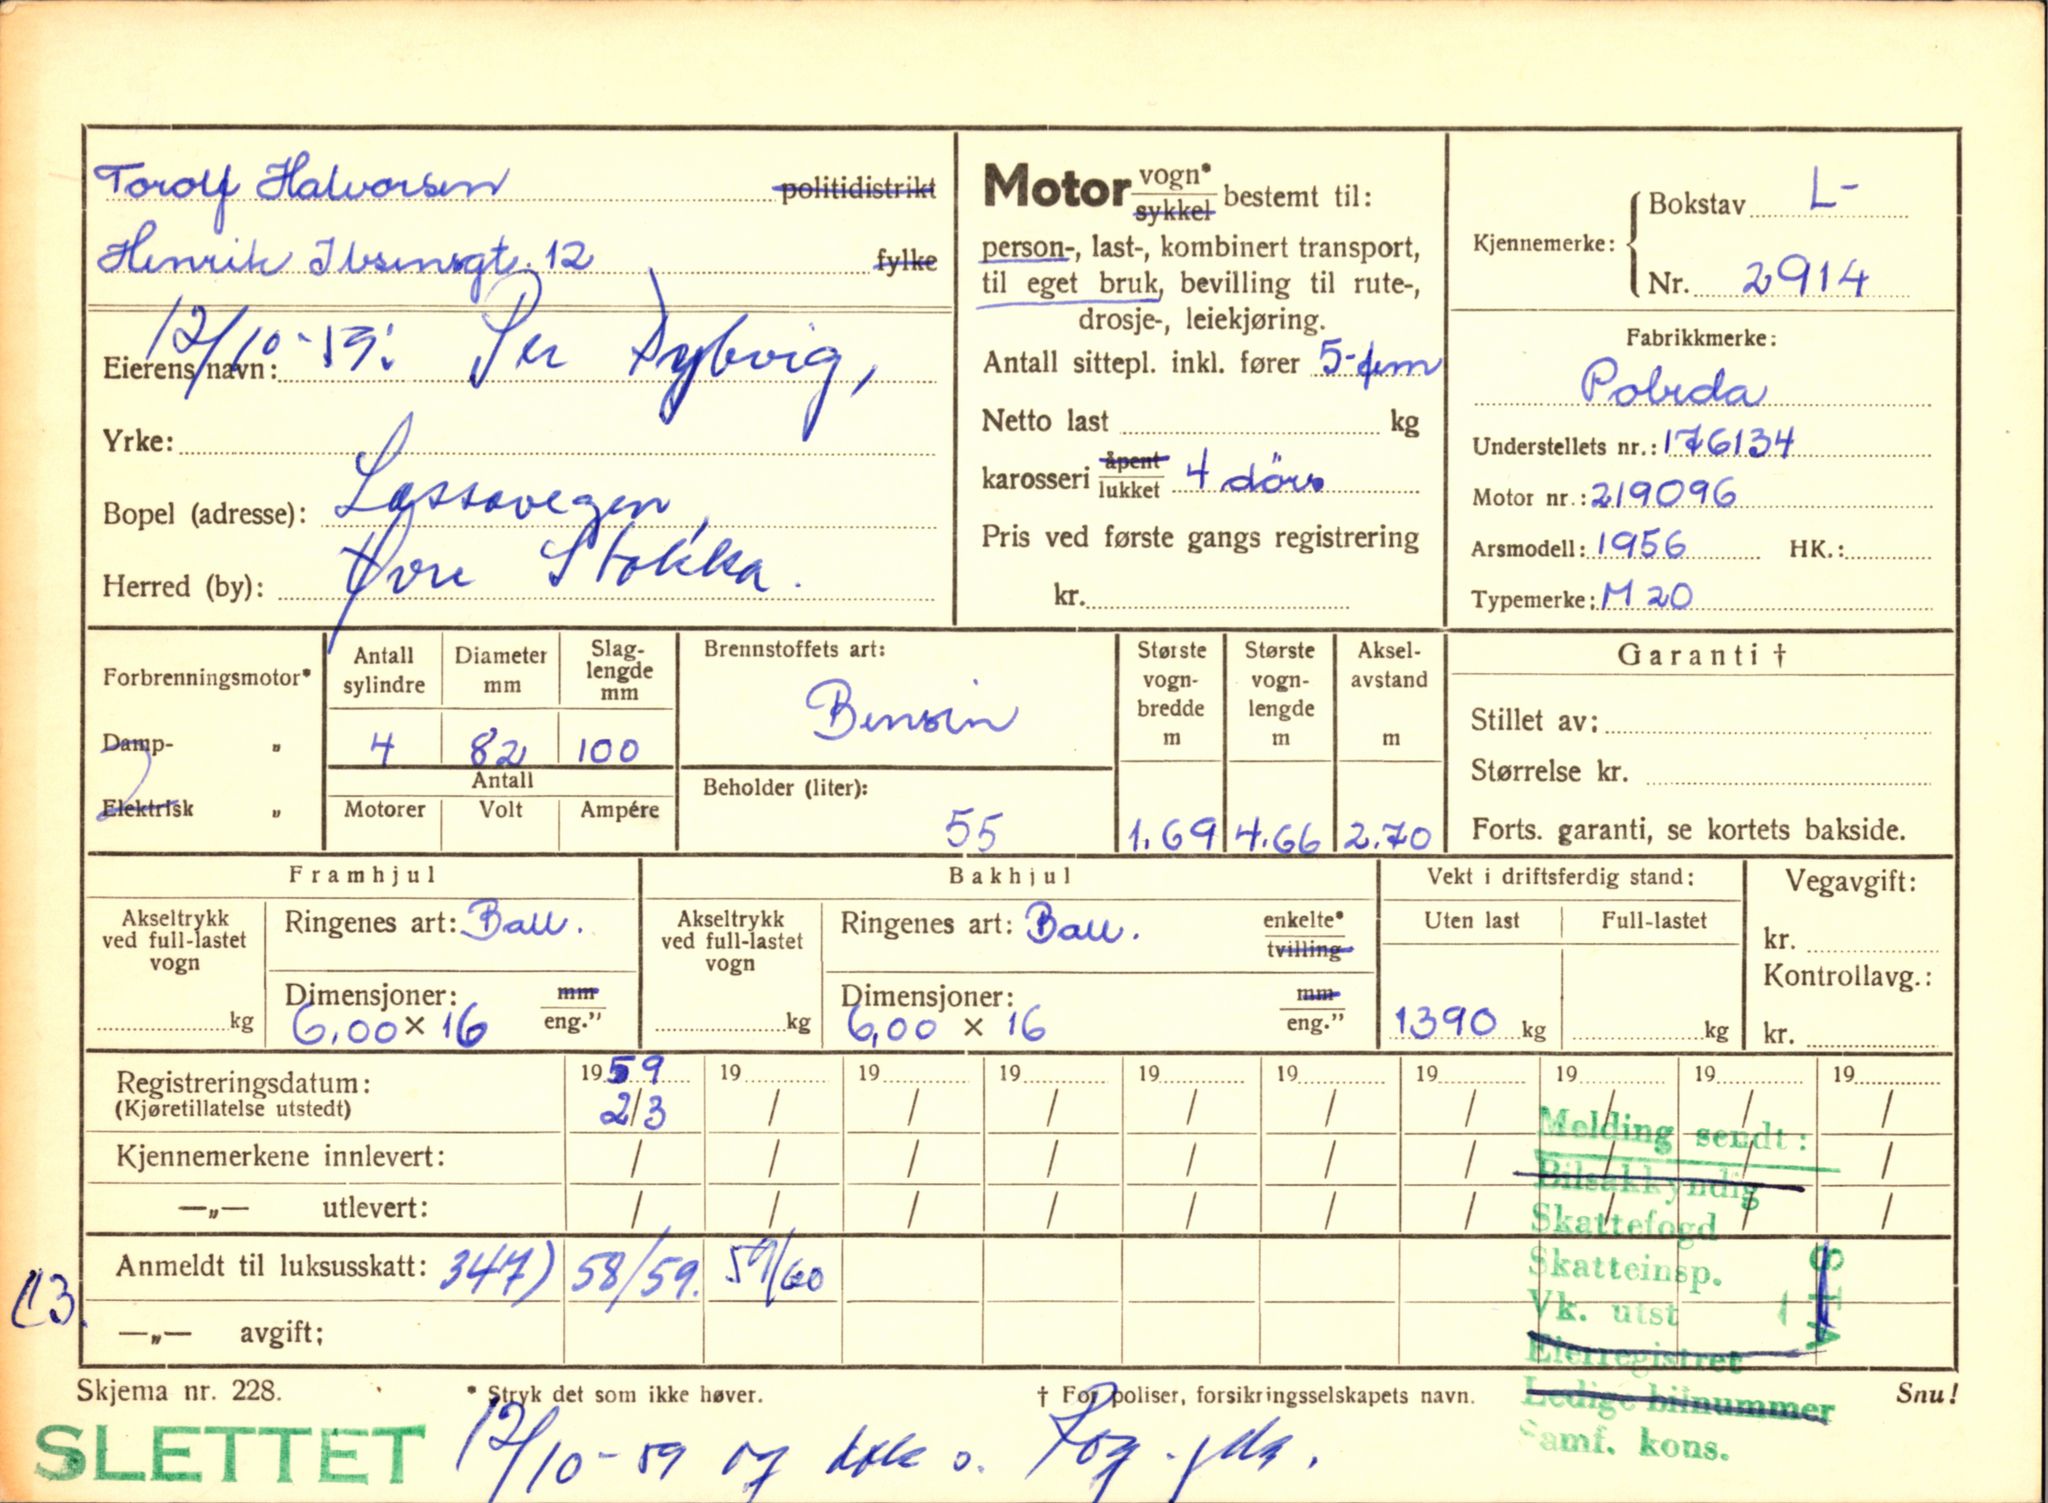 Torolf Halvorsen politidistrikt
Henrik Ibsensgt. 12 fylke
12/10-59: Per Dybvig,
Eierens navn:
Yrke:
Bopel (adresse): Lassavegen,
Øvre Stokka.
Herred (by):
Motor vogn* sykkel bestemt til:
person-, last-, kombinert transport,
til eget bruk, bevilling til rute-,
drosje-, leiekjøring.
Antall sittepl. inkl. fører 5-fem
Netto last kg
karosseri åpent lukket 4 dörs
Pris ved første gangs registrering
kr.
Kjennemerke: Bokstav L-
Nr. 2914
Fabrikkmerke:
Pobeda
Understellets nr.: 176134
Motor nr.: 219096
Arsmodell: 1956 HK.:
Typemerke: M 20
Forbrenningsmotor*
Damp- „
Elektrisk „
Antall sylindre Diameter mm Slaglengde mm
4 82 100
Antall
Motorer Volt Ampére
Brennstoffets art:
Bensin
Beholder (liter):
55
Største vogn-bredde m
1.69
Største vogn-lengde m
4.66
Aksel-avstand m
2.70
Garanti †
Stillet av:
Størrelse kr.
Forts. garanti, se kortets bakside.
Framhjul
Akseltrykk ved full-lastet vogn
kg
Ringenes art: Ball.
Dimensjoner: mm eng."
6.00 × 16
Bakhjul
Akseltrykk ved full-lastet vogn
kg
Ringenes art: Ball. enkelte* tvilling
Dimensjoner: mm eng."
6,00 × 16
Vekt i driftsferdig stand:
Uten last Full-lastet
1390 kg kg
Vegavgift:
kr.
Kontrollavg.:
kr.
Registreringsdatum: 1959 19 19 19 19 19 19 19 19 19
(Kjøretillatelse utstedt) 2/3 / / / / / / / / /
Kjennemerkene innlevert: / / / / / / / / / /
—„— utlevert: / / / / / / / / / /
Anmeldt til luksusskatt: 347) 58/59. 59/60
—„— avgift;
Melding sendt:
Bilsakkyndig
Skattefogd
Skatteinsp.
Vk. utst
Eierregistret
Ledige bilnummer
Samf. kons.
Skjema nr. 228. * Stryk det som ikke høver. † For poliser, forsikringsselskapets navn. Snu!
SLETTET 12/10-59 og